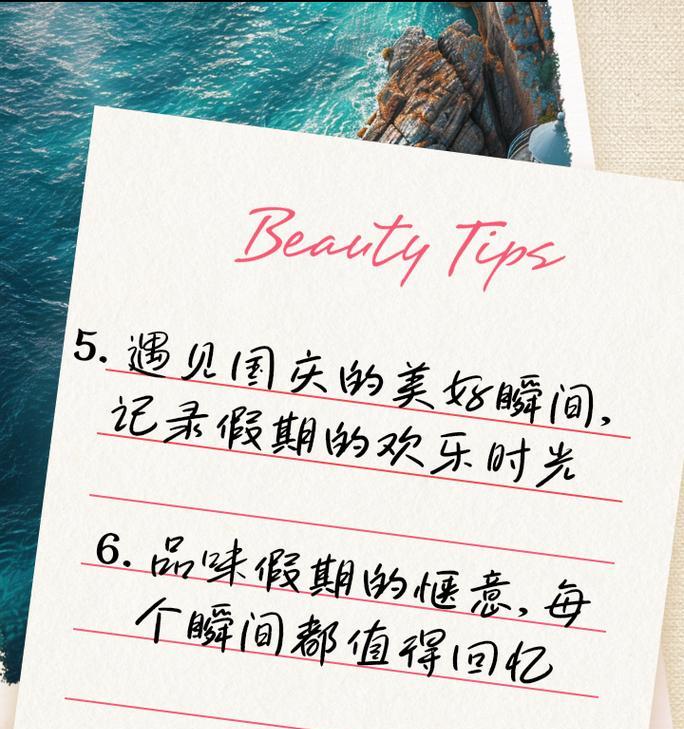 Beauty Tips
5. 遇见国庆的美好瞬间,
记录假期的欢乐时光
6. 品味假期的惬意, 每
个瞬间都值得回忆